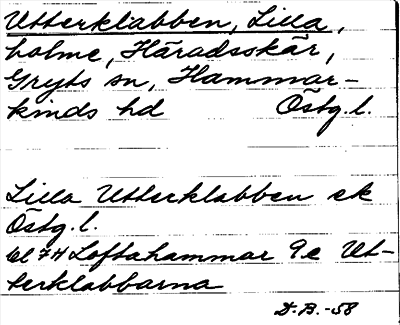 Utterklabben, Lilla,
holme, Häradsskär,
Gryts sn, Hammar-
kinds hd Östg.l.
Lilla Utterklabben ek
Östg.l.
bl 74 Loftahammar 9e Ut-
terklabbarna
D.B.-58